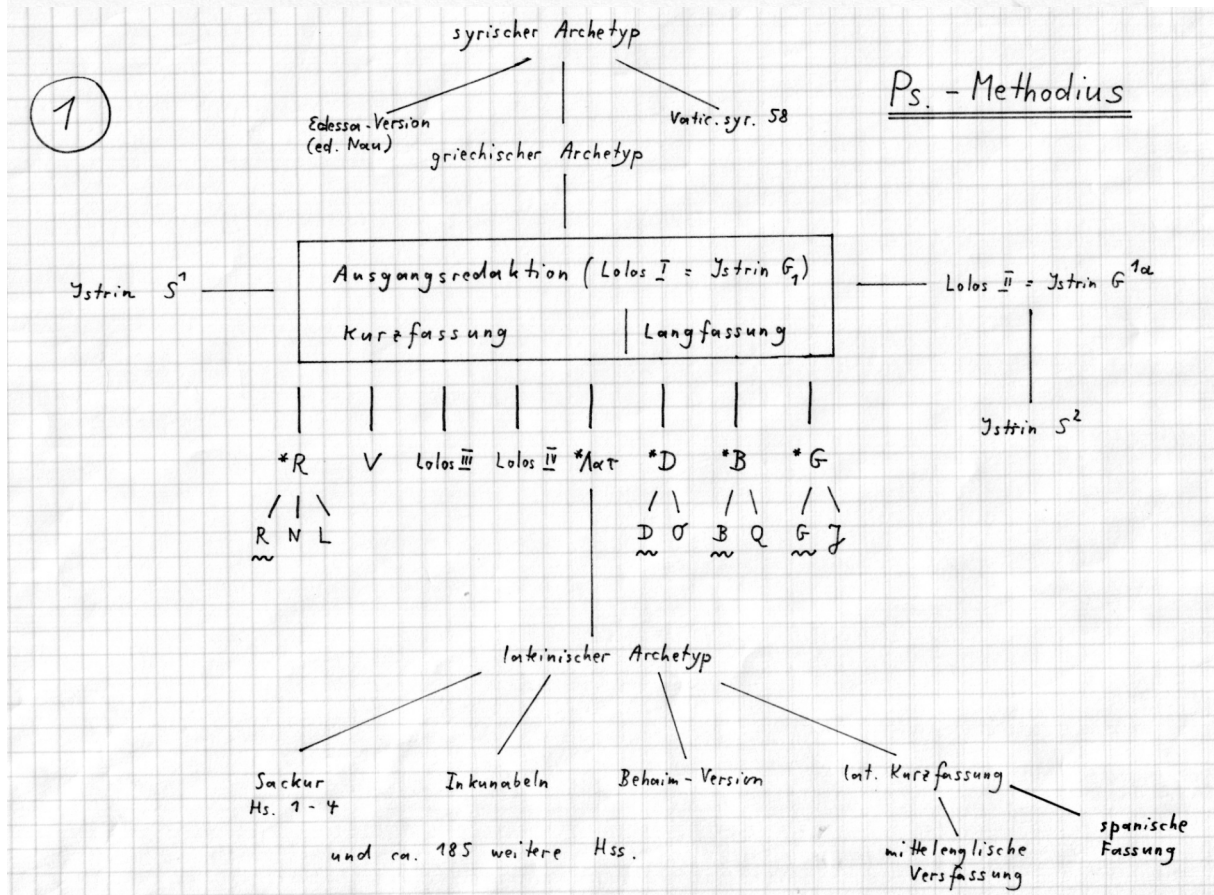 syrischer Archetyp
1
Ps. - Methodius
Edessa-Version
(ed. Nau)
Vatic. syr. 58
griechischer Archetyp
Ausgangsredaktion (Lolos I = Istrin G1)
Istrin S1
Lolos II = Istrin G1a
Kurzfassung
Langfassung
Istrin S2
*R V Lolos III Lolos IV *Λατ *D *B *G
R N L D O B Q G J
lateinischer Archetyp
Sackur
Hs. 1 - 4
Inkunabeln
Behaim-Version
lat. Kurzfassung
und ca. 185 weitere Hss.
mittelenglische
Versfassung
spanische
Fassung